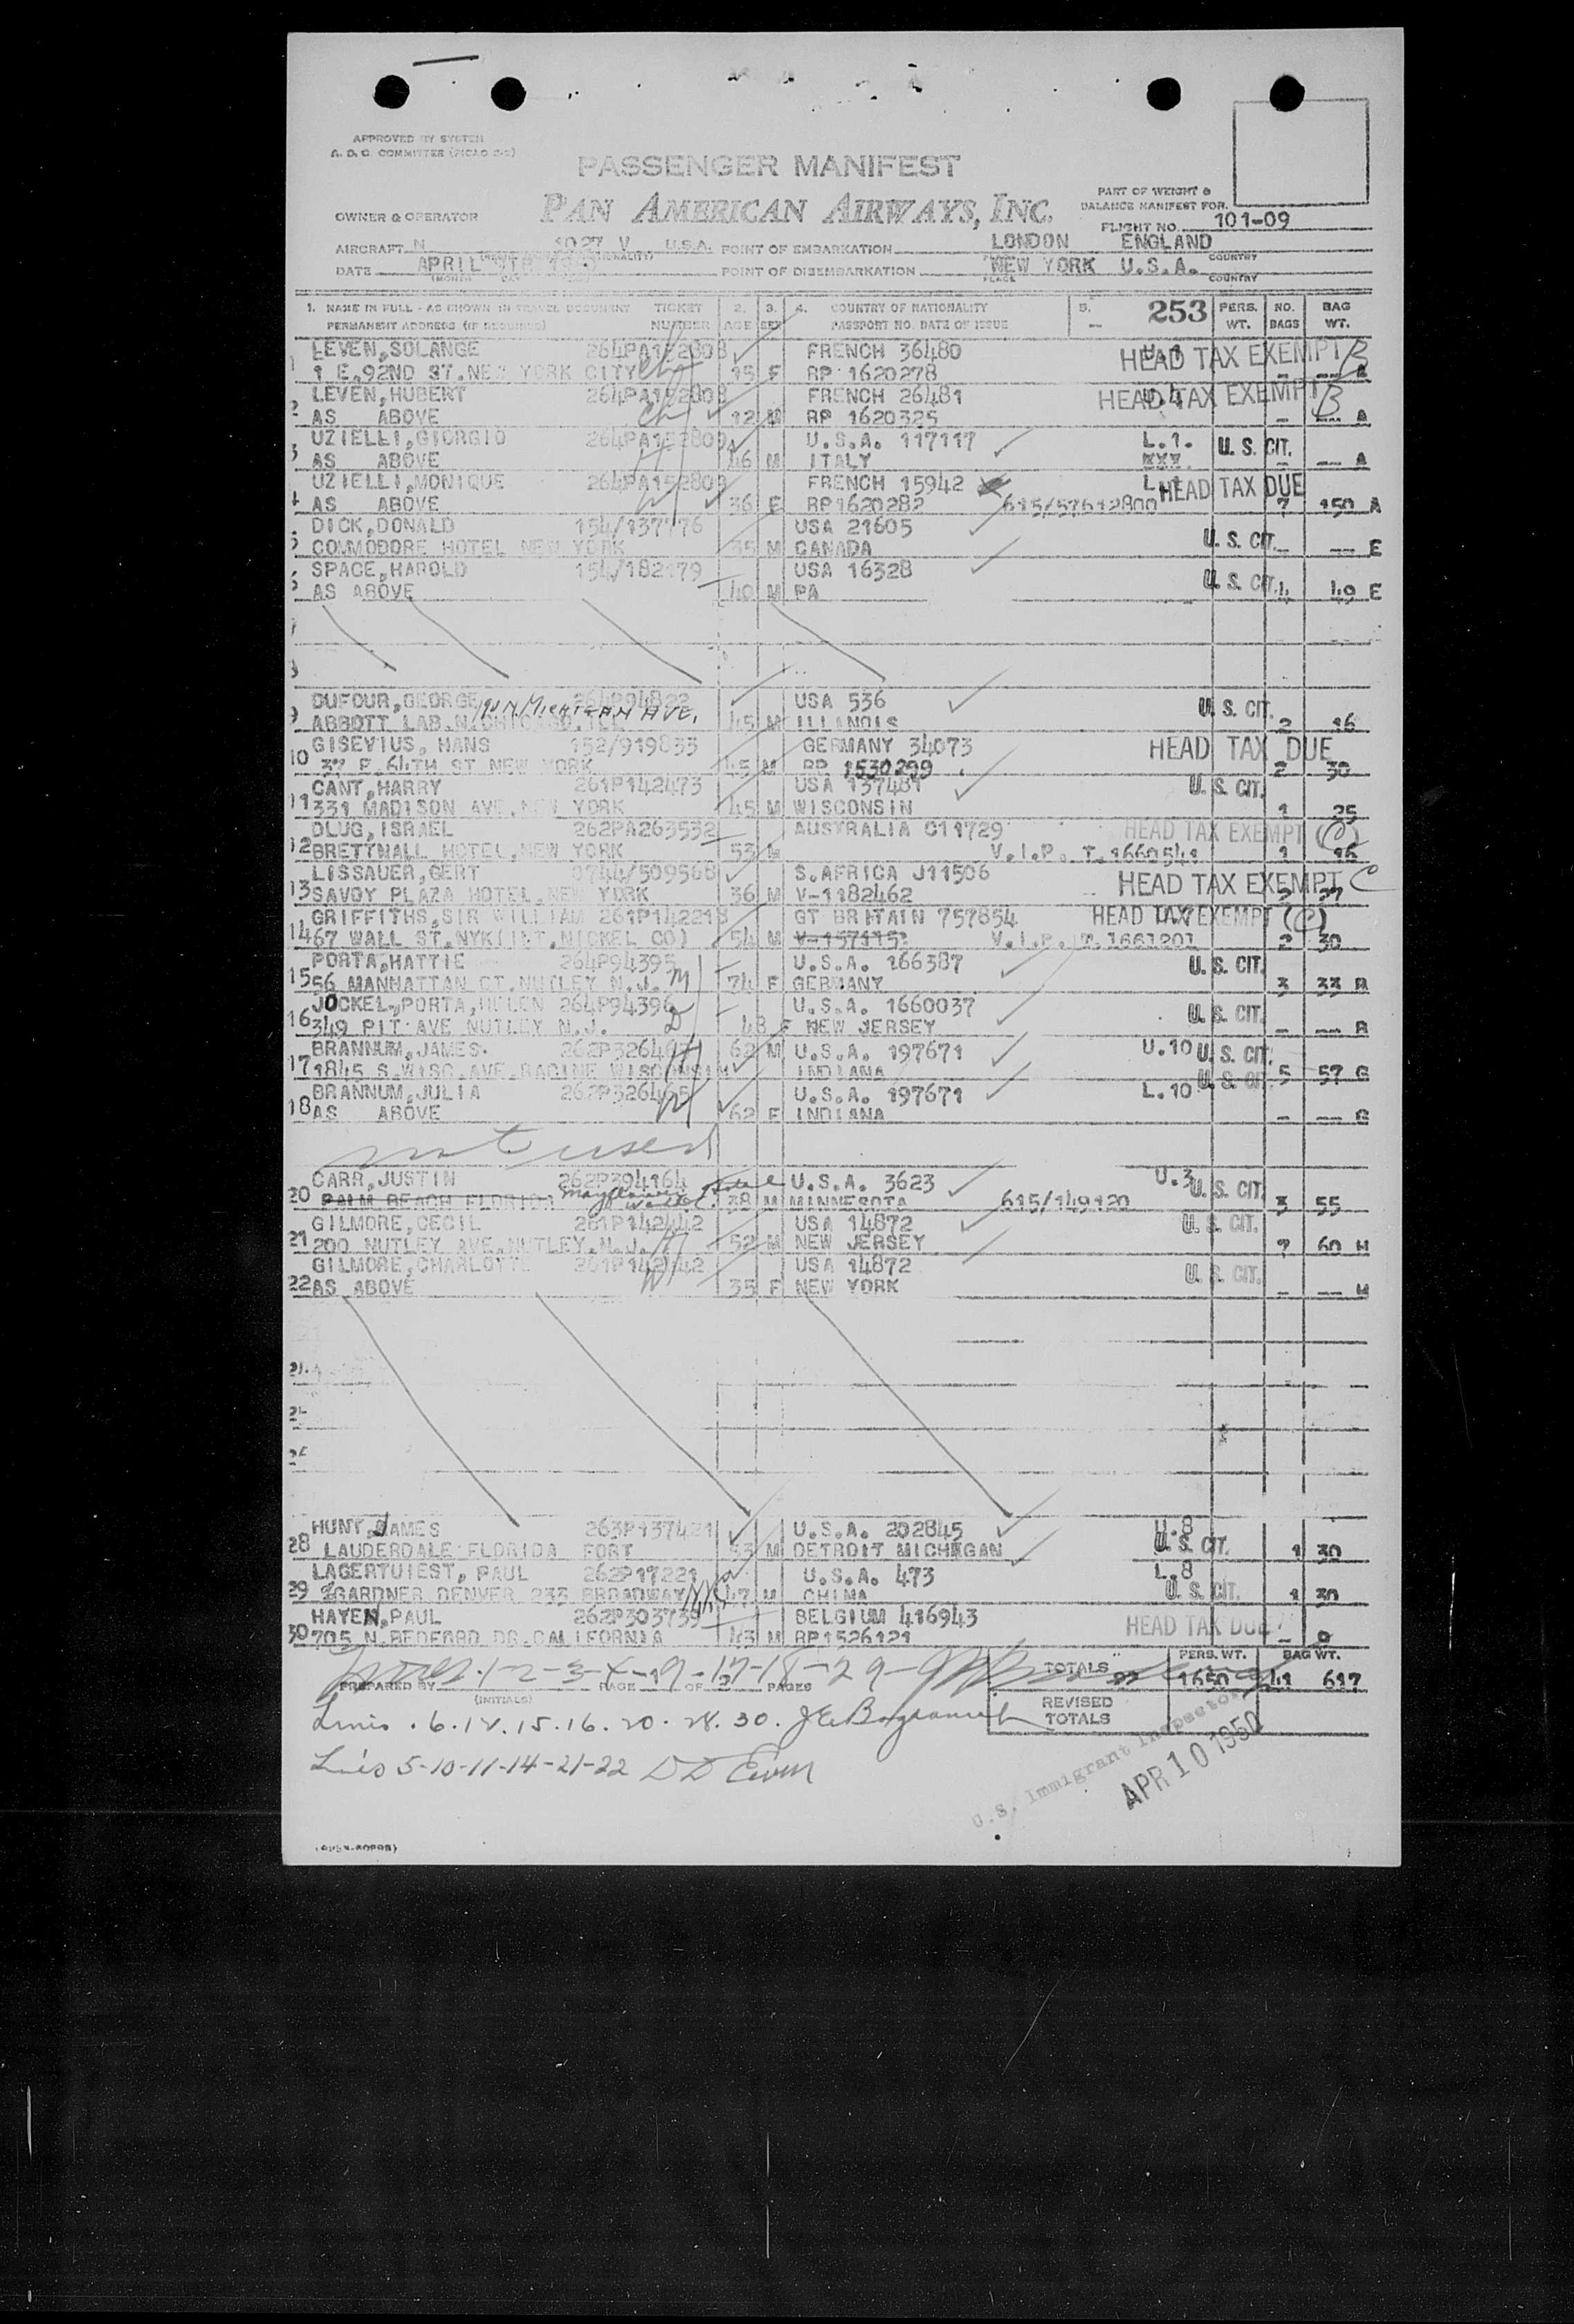 APPROVED BY SYSTEM
A. D. C. COMMITTEE
PASSENGER MANIFEST
PAN AMERICAN AIRWAYS, INC.
PART OF WEIGHT &
BALANCE MANIFEST FOR
OWNER & OPERATOR
FLIGHT NO. 101-09
AIRCRAFT N 1027 V U.S.A. POINT OF EMBARKATION LONDON ENGLAND
DATE APRIL POINT OF DISEMBARKATION NEW YORK U.S.A.
PLACE COUNTRY
1. NAME IN FULL - AS SHOWN IN TRAVEL DOCUMENT TICKET 2. 3. 4. COUNTRY OF NATIONALITY 5. 253 PERS. NO. BAG
PERMANENT ADDRESS (IF REQUIRED) NUMBER AGE SEX PASSPORT NO. DATE OF ISSUE WT. BAGS WT.
LEVEN,SOLANGE 264PA152808 FRENCH 36480 HEAD TAX EXEMPT B
1 E.92ND ST.NEW YORK CITY Ch 15 F RP 1620278 A
LEVEN,HUBERT 264PA152808 FRENCH 26481 HEAD TAX EXEMPT B
2 AS ABOVE Ch 12 M RP 1620325 A
UZIELLI,GIORGIO 264PA152809 U.S.A. 117117 L.1. U. S. CIT.
AS ABOVE H 46 M ITALY A
UZIELLI,MONIQUE 264PA152809 FRENCH 15942 HEAD TAX DUE
AS ABOVE W 36 F RP1620282 615/57612800 7 150 A
DICK,DONALD 154/137776 USA 21605
COMMODORE HOTEL NEW YORK 35 M CANADA U. S. CIT. E
SPACE,HAROLD 154/182179 USA 16328
AS ABOVE 40 M PA U. S. CIT. 4 49 E
DUFOUR,GEORGE 264P94822 USA 536
ABBOTT LAB.N.CHICAGO,ILL MICHIGAN AVE. 45 M ILLANOIS U. S. CIT. 2 16
GISEVIUS, HANS 152/919833 GERMANY 34073 HEAD TAX DUE
10 37 E.64TH ST NEW YORK 45 M RP 1530299 2 30
CANT,HARRY 261P142473 USA 137481 U. S. CIT.
11 331 MADISON AVE.NEW YORK 45 M WISCONSIN 1 25
DLUG,ISRAEL 262PA263532 AUSTRALIA C11729 HEAD TAX EXEMPT (C)
12 BRETTNALL HOTEL,NEW YORK 53 V.I.P. T.1660541 1 16
LISSAUER,GERT 0744/509568 S.AFRICA J11506 HEAD TAX EXEMPT C
13 SAVOY PLAZA HOTEL,NEW YORK 36 M V-1182462 2 27
GRIFFITHS,SIR WILLIAM 261P142218 GT BRITAIN 757854 HEAD TAX EXEMPT (C)
14 67 WALL ST.NYK(INT.NICKEL CO) 54 M V.I.P. T.1661201 2 30
PORTA,HATTIE 264P94395 U.S.A. 166387 U. S. CIT.
15 56 MANHATTAN CT.NUTLEY N.J. M 74 F GERMANY 3 33 R
JOCKEL,PORTA,HELEN 264P94396 U.S.A. 1660037 U. S. CIT.
16 349 PIT AVE NUTLEY N.J. D 48 F NEW JERSEY R
BRANNUM,JAMES. 262P326464 H 62 M U.S.A. 197671 U.10 U. S. CIT.
17 1845 S.WISC.AVE.RACINE WISCONSIN INDIANA 5 57 G
BRANNUM,JULIA 262P326465 U.S.A. 197671 L.10 U. S. CIT.
18 AS ABOVE W 62 F INDIANA G
not used
CARR,JUSTIN 262P394164 U.S.A. 3623 U.3 U. S. CIT.
20 PALM BEACH FLORIDA Mayflower Hotel 38 M MINNESOTA 615/149120 3 55
GILMORE,CECIL 261P142442 USA 14872 U. S. CIT.
21 200 NUTLEY AVE.NUTLEY.N.J. H 52 M NEW JERSEY 7 60 H
GILMORE,CHARLOTTE 261P142442 USA 14872 U. S. CIT.
22 AS ABOVE W 35 F NEW YORK H
HUNT,JAMES 263P137421 U.S.A. 202845 U.8
28 LAUDERDALE FLORIDA FORT 53 M DETROIT MICHAGAN U. S. CIT. 1 30
LAGERTUIEST, PAUL 262P17221 U.S.A. 473 L.8
29 GARDNER DENVER 233 BROADWAY 47 M CHINA U. S. CIT. 1 30
HAYEN,PAUL 262P303739 BELGIUM 416943 HEAD TAX DUE
30 705 N.BEDFORD DR.CALIFORNIA 43 M RP1526121
1-2-3-4-9-17-18-29- TOTALS PERS. WT. 1650 41 BAG WT. 617
PREPARED BY (INITIALS) PAGE OF 2 PAGES
REVISED TOTALS
Lines . 6. 12. 15. 16. 20. 28. 30.
Lines 5-10-11-14-21-22
U.S. Immigrant Inspector
APR 10 1950